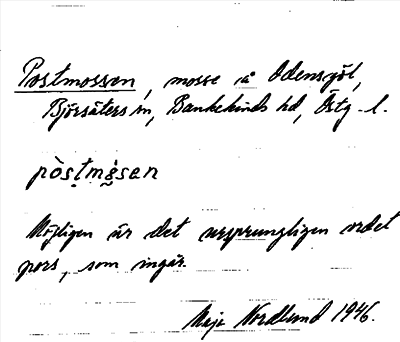 Postmossen, mosse å Odensgöl,
Björsäters sn, Bankekinds hd, Östg. l.
pòs̩tmɷ̀san
Möjligen är det ursprungligen ordet
pors, som ingår.
Maja Nordlund 1946.